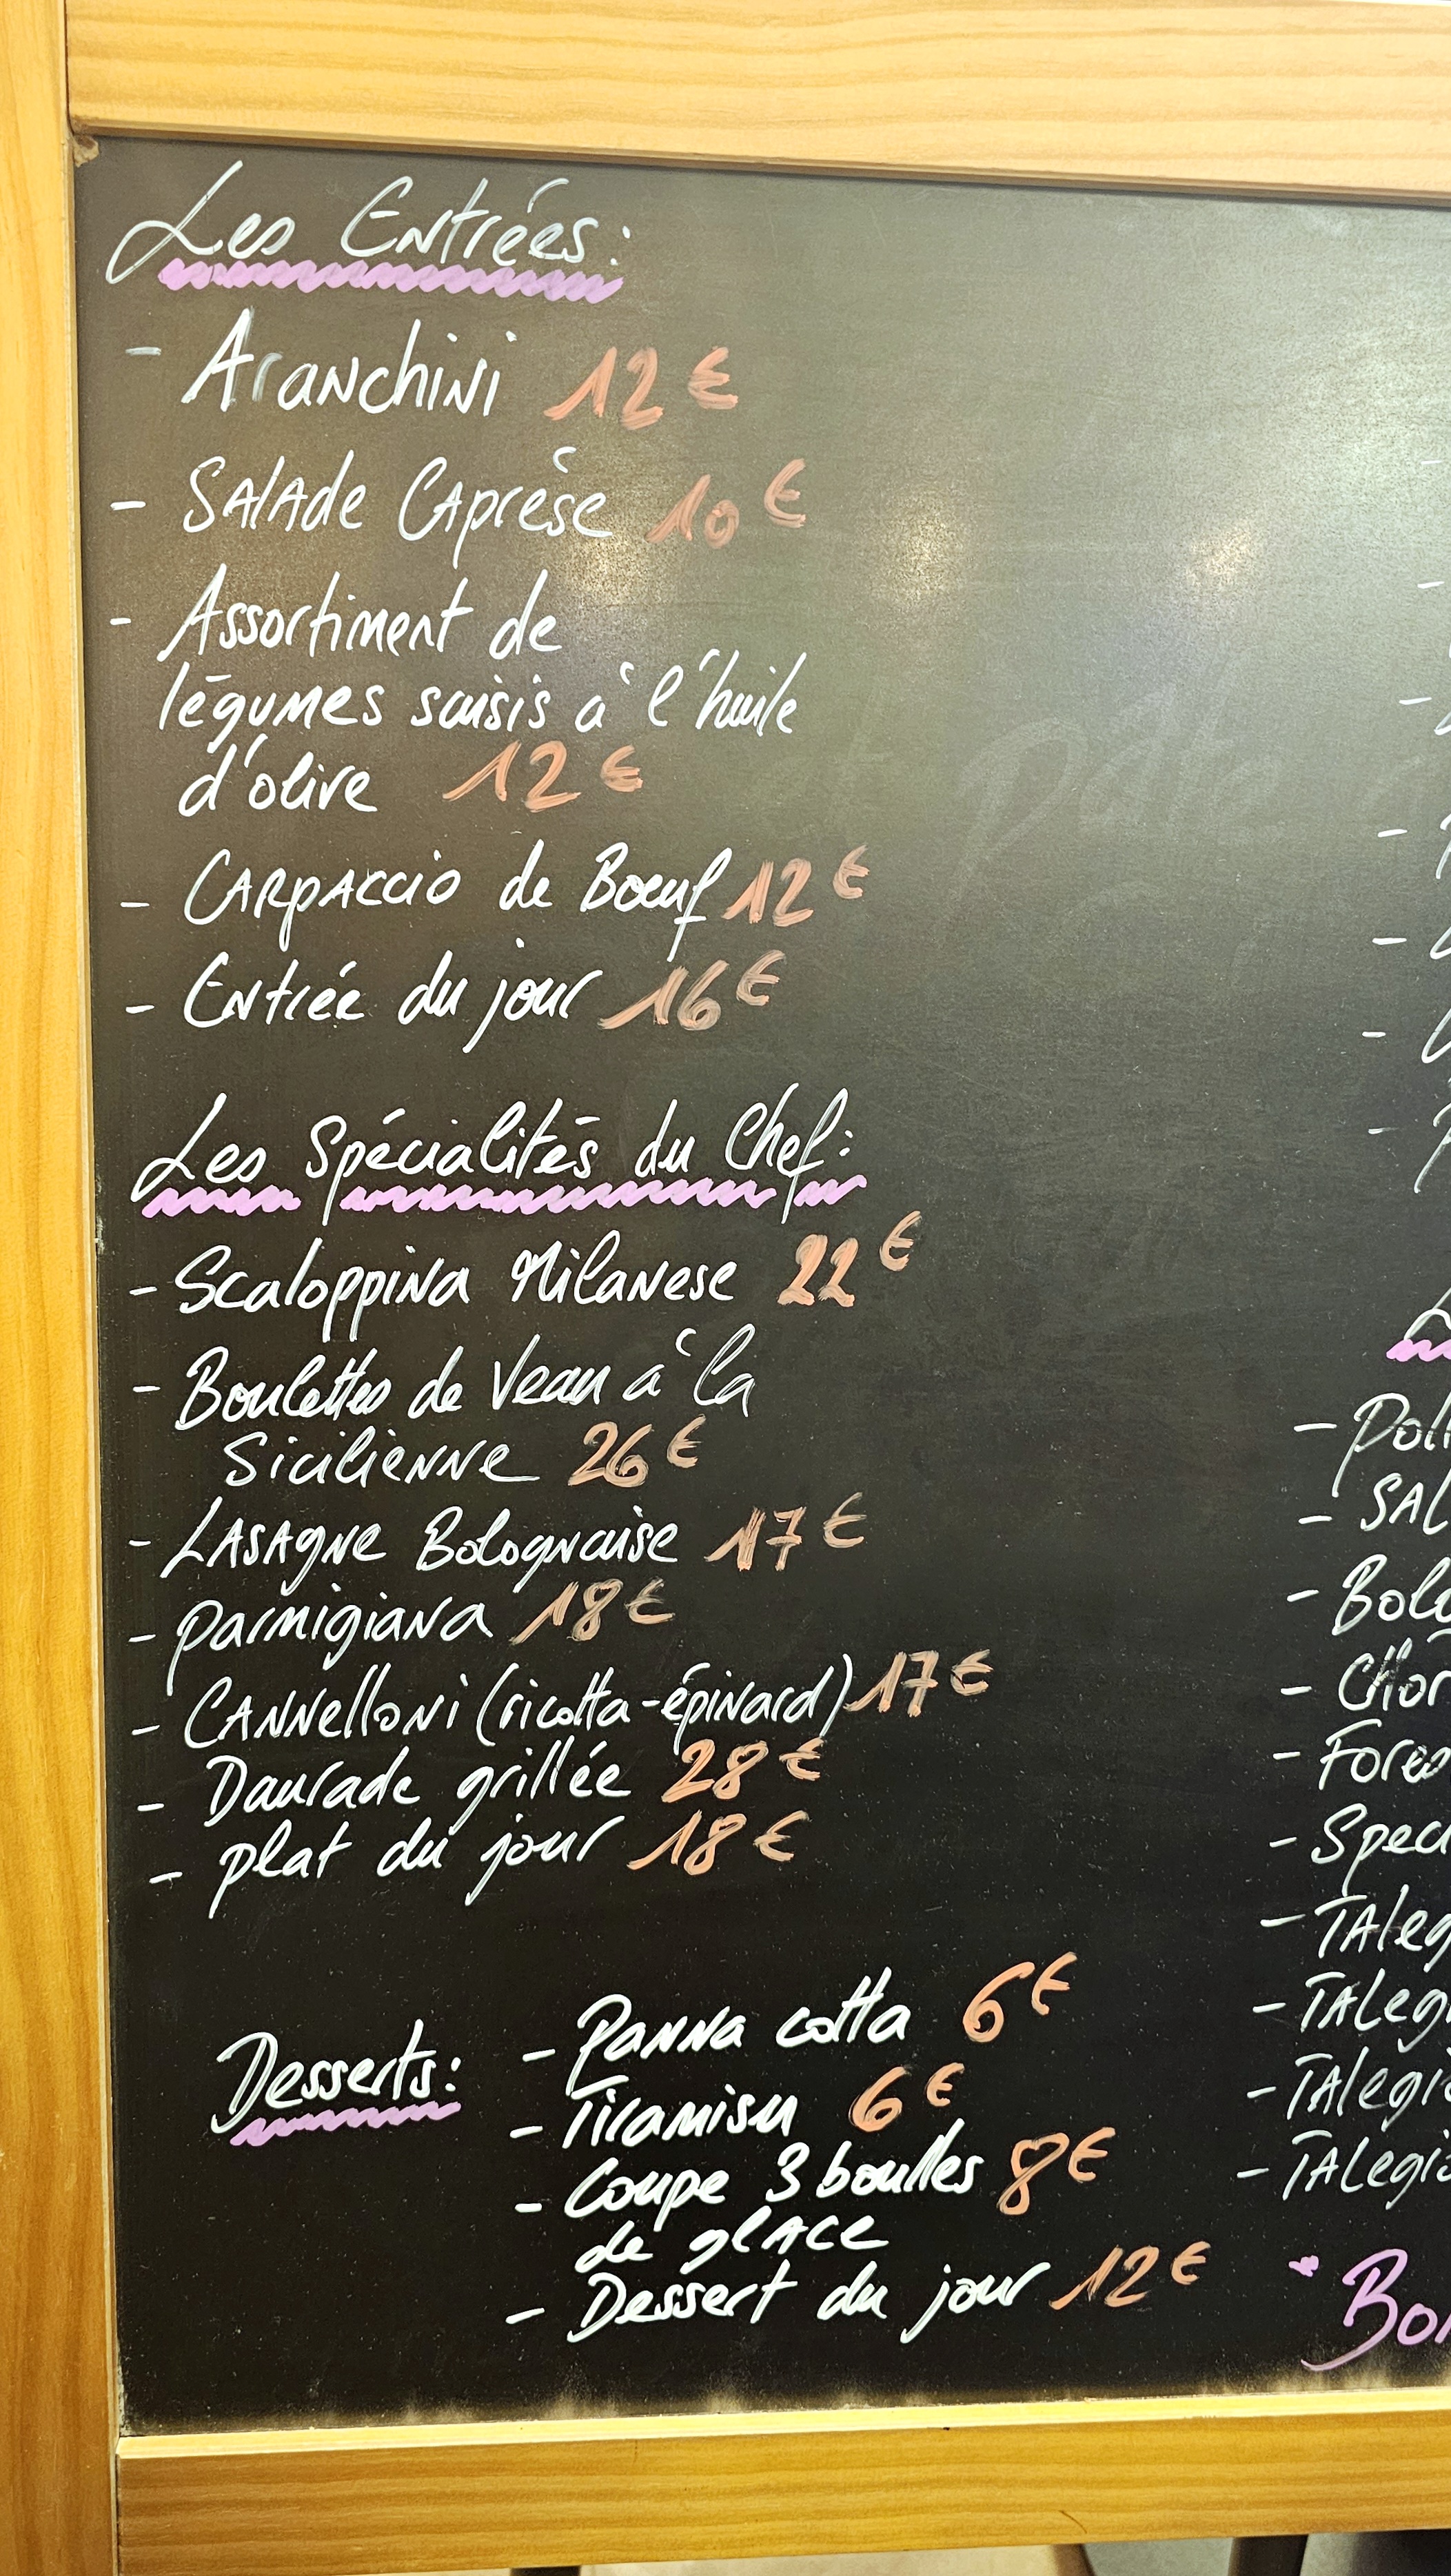 Les Entrées:
- Aranchini 12€
- Salade Caprèse 10€
- Assortiment de
légumes saisis à l'huile
d'olive 12€
- Carpaccio de Bœuf 12€
- Entrée du jour 16€
Les Spécialités du Chef:
- Scaloppina Milanese 22€
- Boulettes de Veau à la
Sicilienne 26€
- Lasagne Bolognaise 17€
- Parmigiana 18€
- Cannelloni (ricotta-épinard) 17€
- Daurade grillée 28€
- plat du jour 18€
Desserts:
- Panna cotta 6€
- Tiramisu 6€
- Coupe 3 boulles 8€
de glace
- Dessert du jour 12€